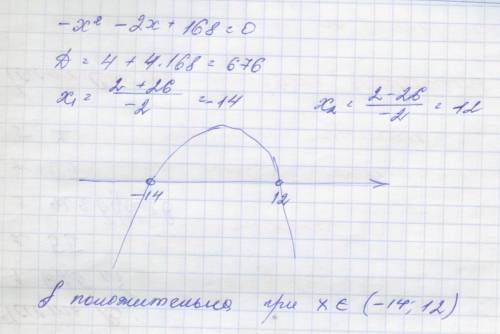 -x² - 2x + 168 = 0
D = 4 + 4·168 = 676
x₁ = (2 + 26)/(-2) = -14    x₂ = (2 - 26)/(-2) = 12
-14    12
f положительна при x ∈ (-14; 12)